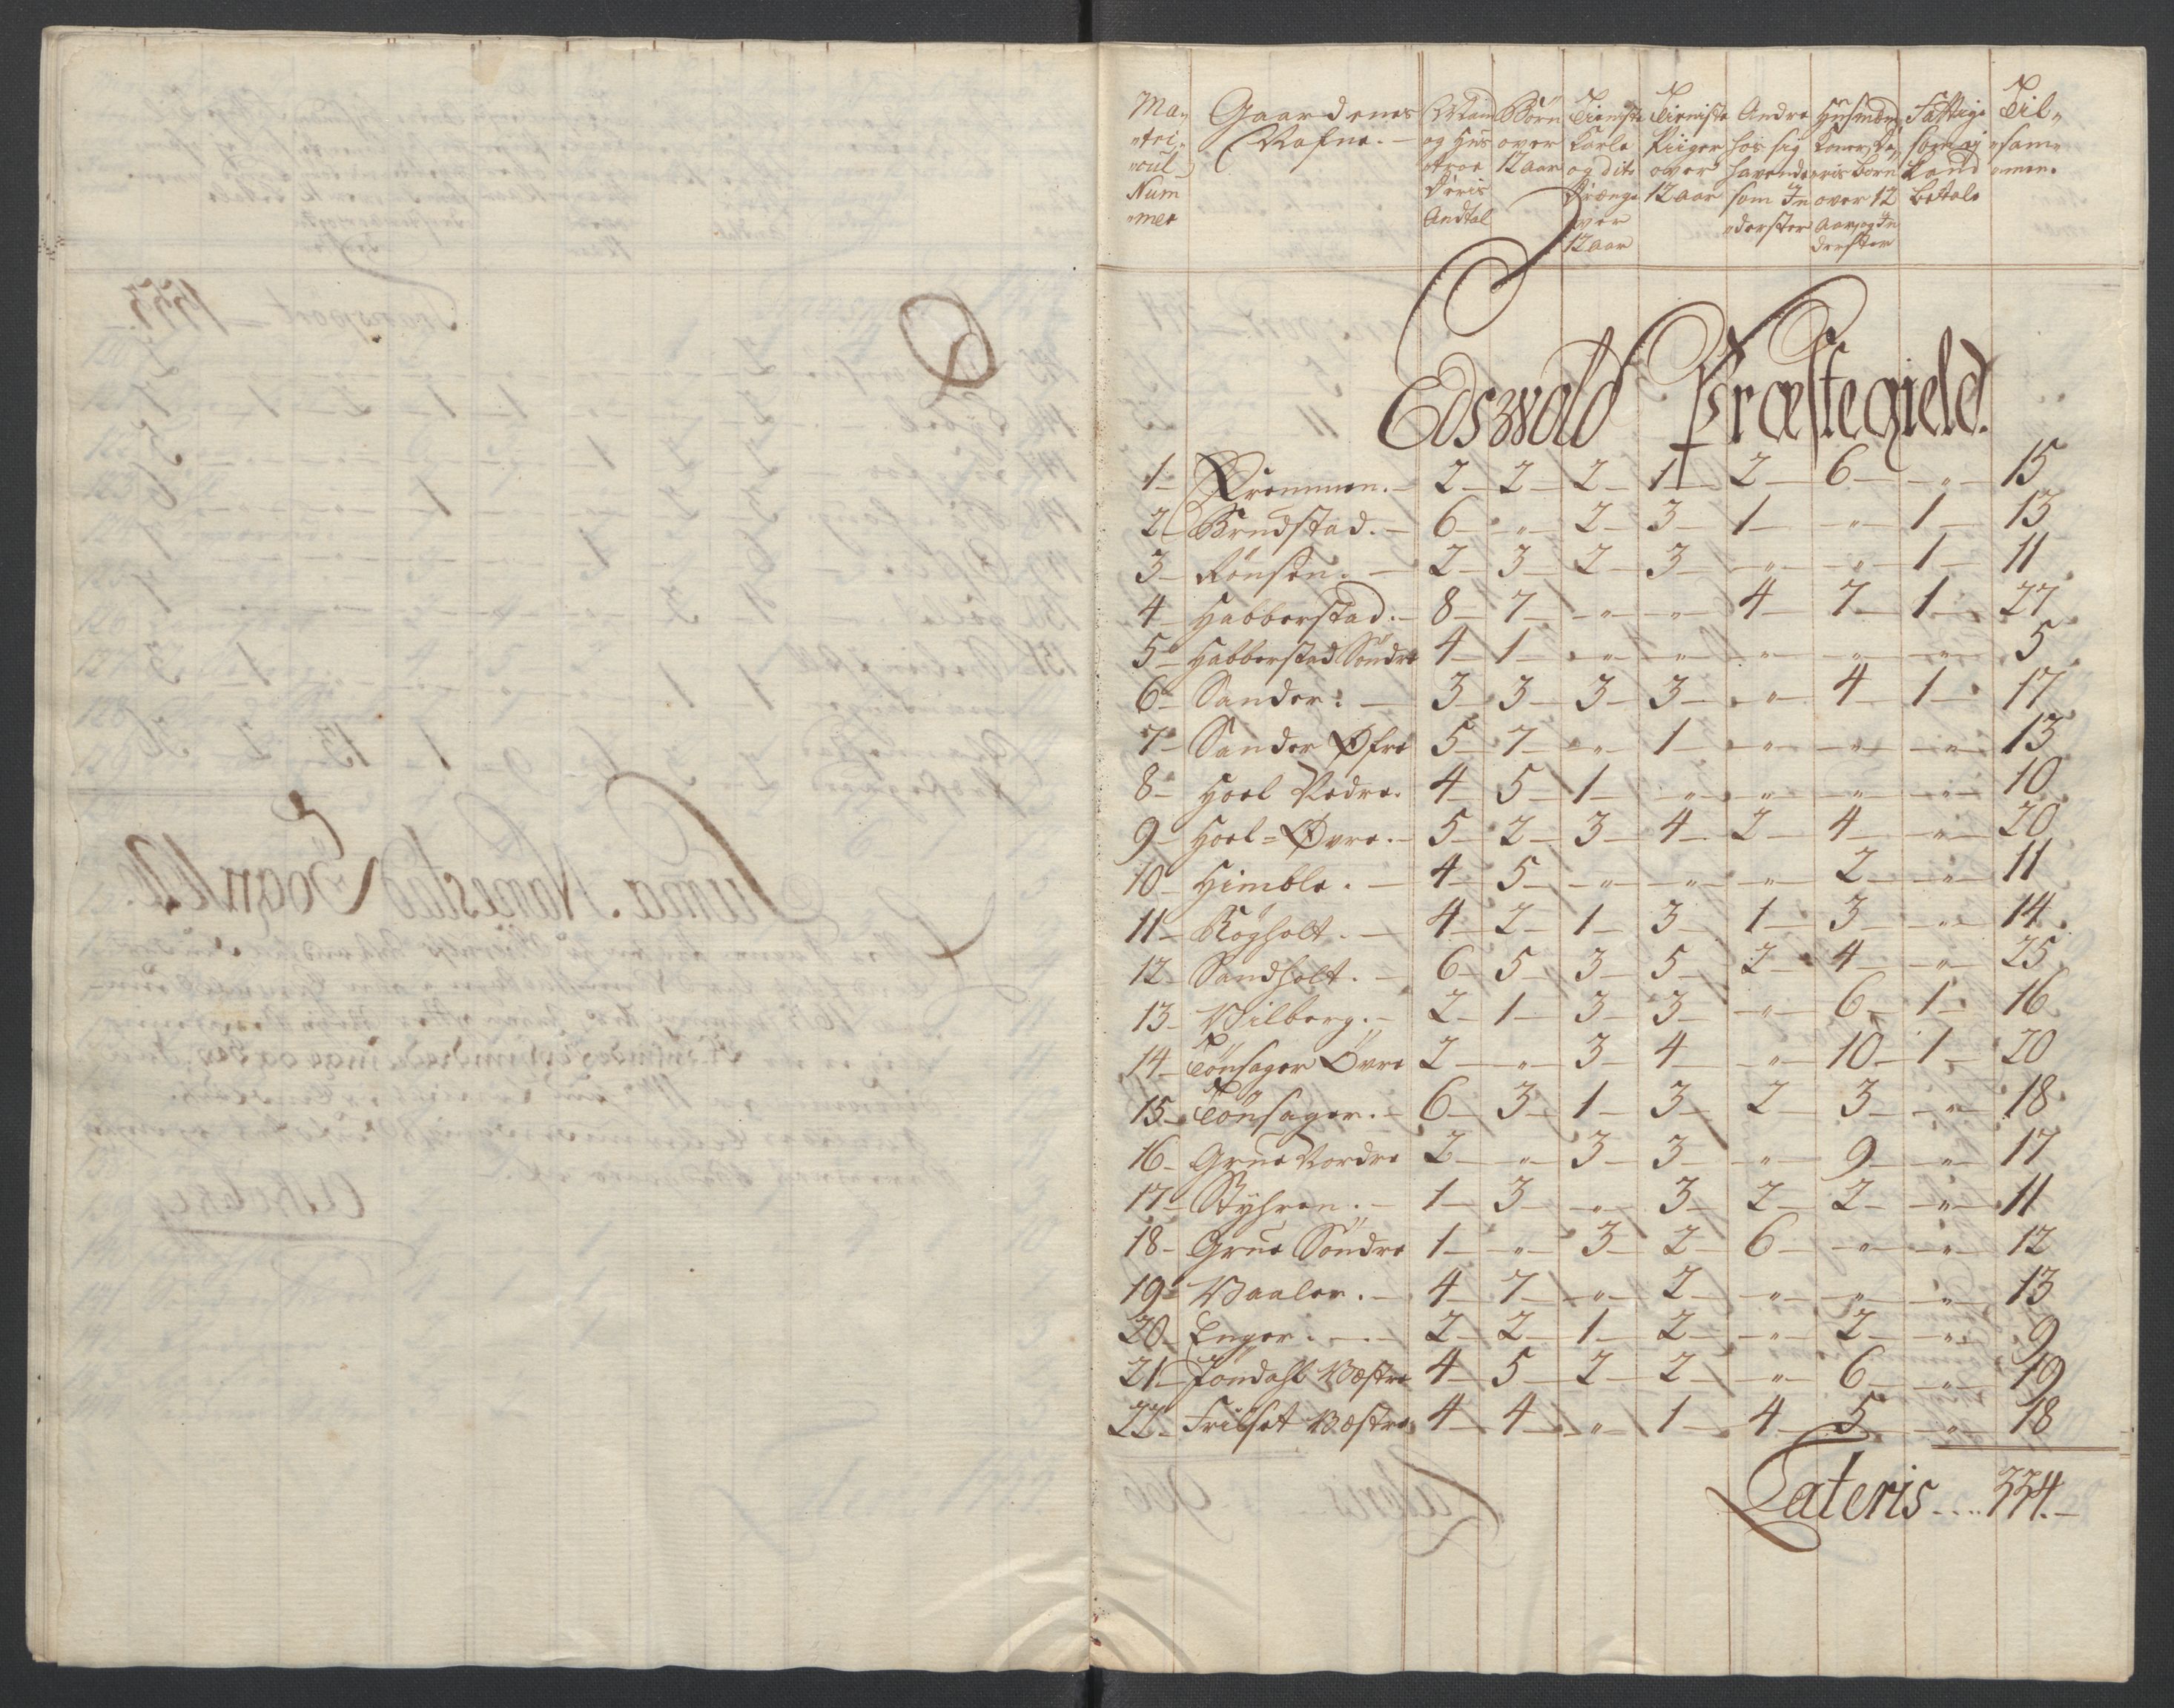 Ma-
tri-
cul
Num
mer
Gaardenes
Nafne.
Mand
og Hus
troe
Deris
Andtal
Börn
over
12 aar
Tieniste
Karle
og dito
Drænge
over
12 aar
Tieniste
Piiger
over
12 aar
Andre
hos sig
havende
som In
derster
Husmænd
Koner, De
ris Börn
over 12
Aar, og In
derster
Fattige
som ej
Kand
betale
Til-
sam-
men.
Edswold Præstegield.
1 Drommen. 2 2 2 1 2 6 " 15
2 Brudstad. 6 " 2 3 1 " 1 13
3 Rönsen. 2 3 2 3 " " 1 11
4 Habberstad. 8 7 " " 4 7 1 27
5 Habberstad Söndre 4 1 " " " " " 5
6 Sander: 3 3 3 3 " 4 1 17
7 Sander Øfre 5 7 " 1 " " " 13
8 Hoel Nedre. 4 5 1 " " " " 10
9 Hoel = Øvre. 5 2 3 4 2 4 " 20
10 Himble. 4 5 " " " 2 " 11
11 Rögholt. 4 2 1 3 1 3 " 14
12 Sandholt. 6 5 3 5 2 4 " 25
13 Wilberg. 2 1 3 3 " 6 1 16
14 Tönsager Övre 2 " 3 4 " 10 1 20
15 Tönsager. 6 3 1 3 2 3 " 18
16 Grue Nordre 2 " 3 3 " 9 " 17
17 Styhren. 1 3 " 3 2 2 " 11
18 Grue Söndre 1 " 3 2 6 " " 12
19 Waaler. 4 7 " 2 " " " 13
20 Enger. 2 2 1 2 " 2 " 9
21 Jöndahl Wæstre 4 5 2 2 " 6 " 19
22 Frilset Wæstre 4 4 " 1 4 5 " 18
Lateris .... 334.